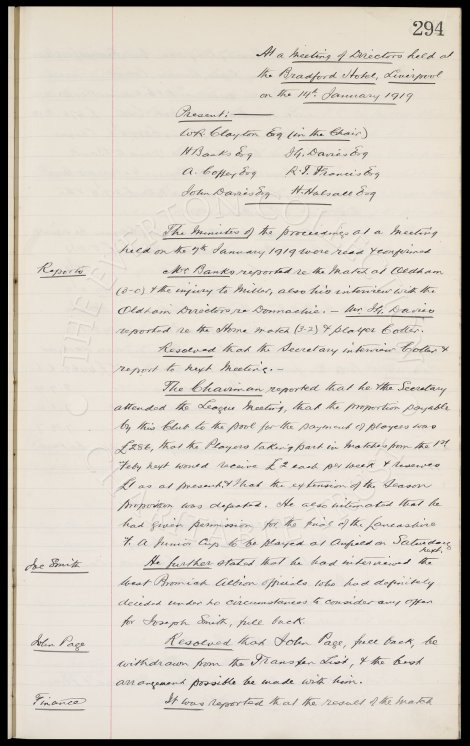 294
At a Meeting of Directors held at
the Bradford Hotel, Liverpool
on the 14th January 1919
Present:
W R Clayton Esq (in the Chair)
H Banks Esq J G. Davies Esq
A. Coffey Esq R. T. Francis Esq
John Davies Esq H. Halsall Esq
The Minutes of the proceedings at a Meeting
held on the 7th January 1919 were read & confirmed
Reports Mr Banks reported re the match at Oldham
(3-0) & the injury to Miller, also his interview with the
Oldham Directors re Donnachie. - Mr. J G. Davies
reported re the Home match (3-2) & player Cotter.
Resolved that the Secretary interview Cotter &
report to next Meeting. -
The Chairman reported that he & the Secretary
attended the League Meeting, that the proportion payable
by this Club to the pool for the payment of players was
£286, that the Players taking part in matches from the 1st
Feby next would receive £2 each per week & reserves
£1 as at present, & that the extension of the Season
proposition was defeated. He also intimated that he
had given permission for the final of the Lancashire
F. A Junior Cup to be played at Anfield on Saturday
next.
Joe Smith He further stated that he had interviewed the
West Bromich Albion officials who had definitely
decided under no circumstances to consider any offer
for Joseph Smith, full back.
John Page Resolved that John Page, full back, be
withdrawn from the Transfer List, & the best
arrangement possible be made with him.
Finance It was reported that the result of the match
THE EVERTON COLLECTION